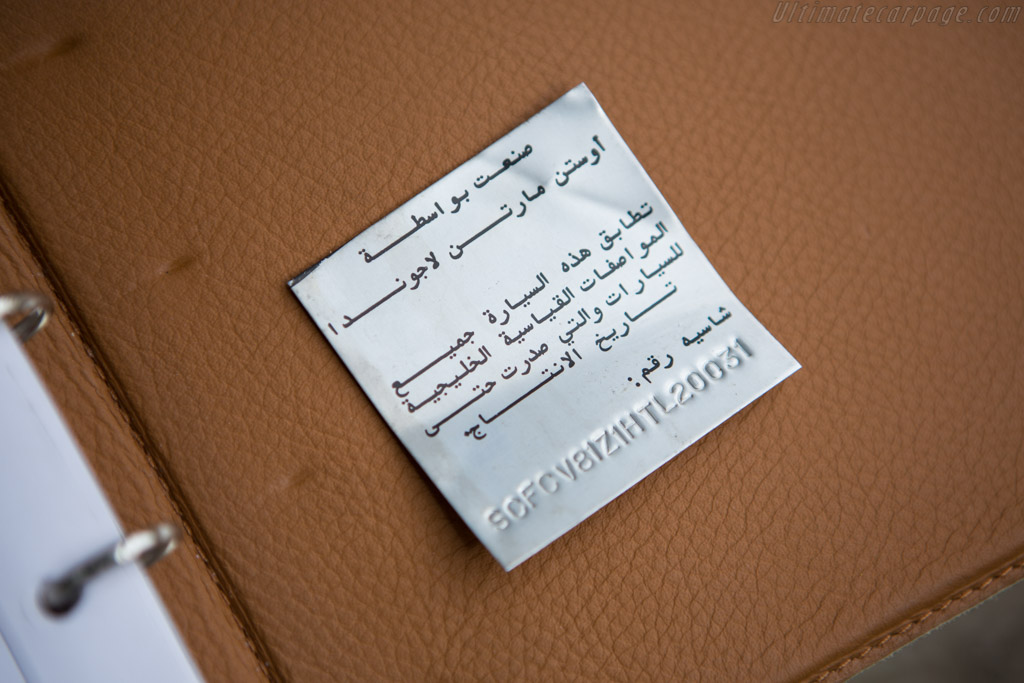 Ultimatecarpage.com
صنعت بواسطة
أوستن مارتن لاجوندا
تطابق هذه السيارة جميع
المواصفات القياسية الخليجية
للسيارات والتي صدرت حتى
تاريخ الانتاج.
شاسيه رقم:
SCFCV81Z1HTL20031